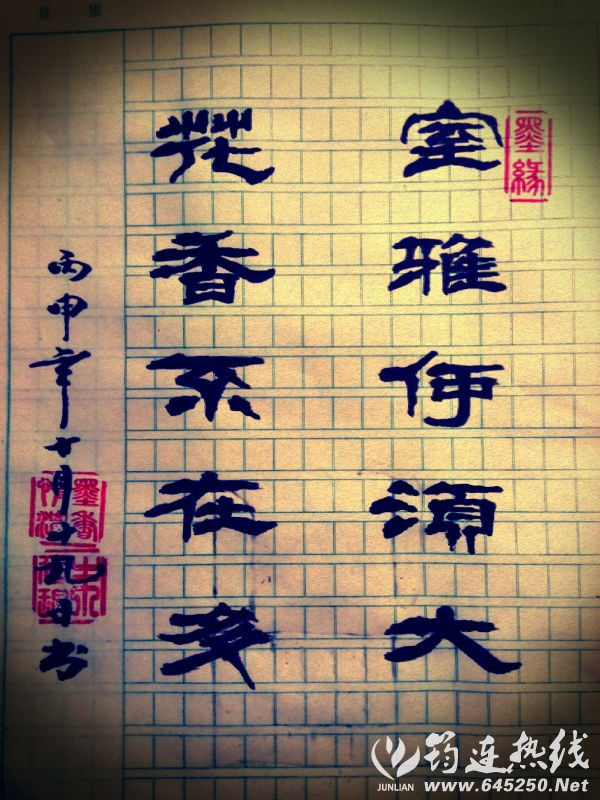 墨緣
室雅何須大
花香不在多
丙申年十月十九日书
筠连热线
JUNLIAN
www.645250.Net